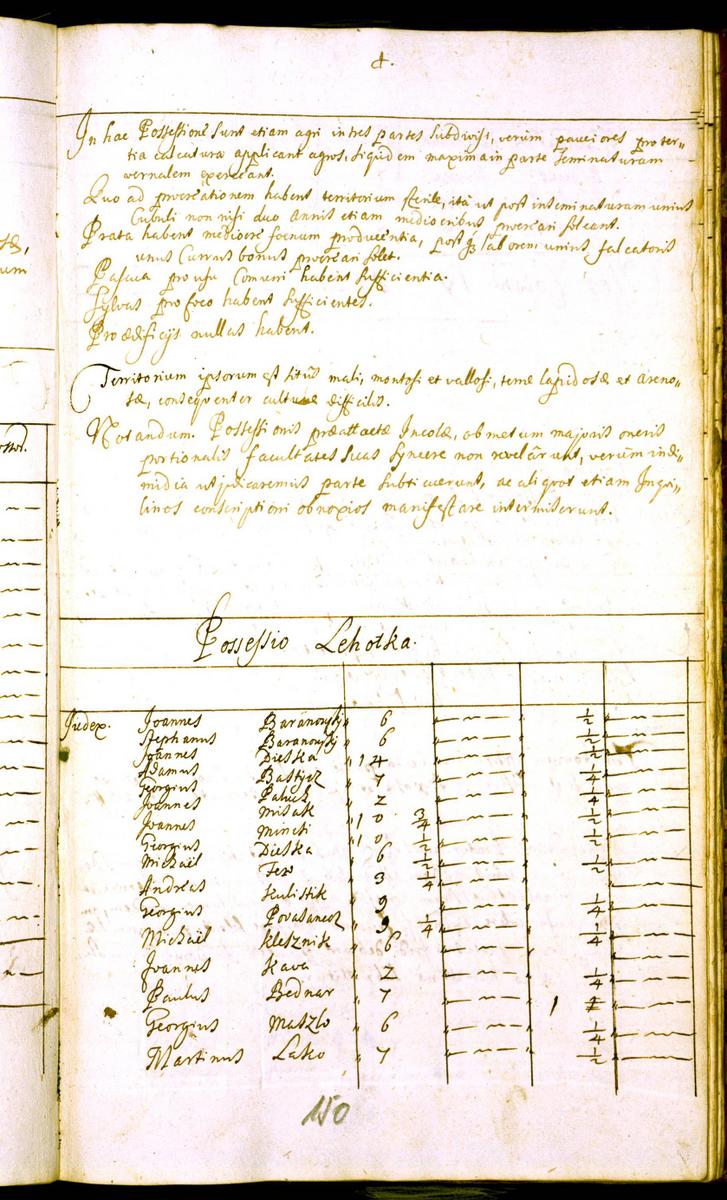 In hac Possessione sunt etiam agri in tres partes subdivisi, verùm pauciores pro ter-
tia calcatura applicant agros, siquidem maxima in parte seminaturam
vernalem exerceant.
Quo ad procreationem habent territorium sterile, ità ut post inseminaturam unius
Cubuli non nisi duo annis etiam mediocribus procreari soleant.
Prata habent mediocre foenum producentia, post laborem unius falcatoris
unus Currus bonus procreari solet.
Pascua pro usu Comuni habent sufficientia.
Sylvas pro foco habent sufficientes.
Pro ædificijs nullas habent.
Territorium ipsorum est sitûs mali, montosi et vallosi, terræ lapidosæ et areno-
sæ, consequenter culturæ difficilis.
Notandum. Possessionis præattactæ Incolæ, ob metum majoris oneris
portionalis facultates suas syncere non revelârunt, verùm in di-
midia ut judicaremus parte subticuerunt, ac aliquot etiam Inqui-
linos conscriptioni obnoxios manifestare intermiserunt.
Possessio Lehotka.
Judex. Joannes Baranovsky 6 ½
Stephanus Baranovsky 6 ½
Joannes Dieska 14 ½
Adamus Bastycz 7 ¼
Georgius 2 ¼
Joannes Misak 10 ¾ ½
Joannes Mincti 10 ½ ½
Georgius Dieska 6 ½
Michaël 3 ¼ ½
Andreas Kulistik 9
Georgius Povasanecz 9 ¼ ¼
Michaël Klesznik 6 ¼
Joannes Kava 2
Paulus Bednar 7 ¼
Georgius Maszlo 6 1 ¼
Martinus Lasko 7 ½
150